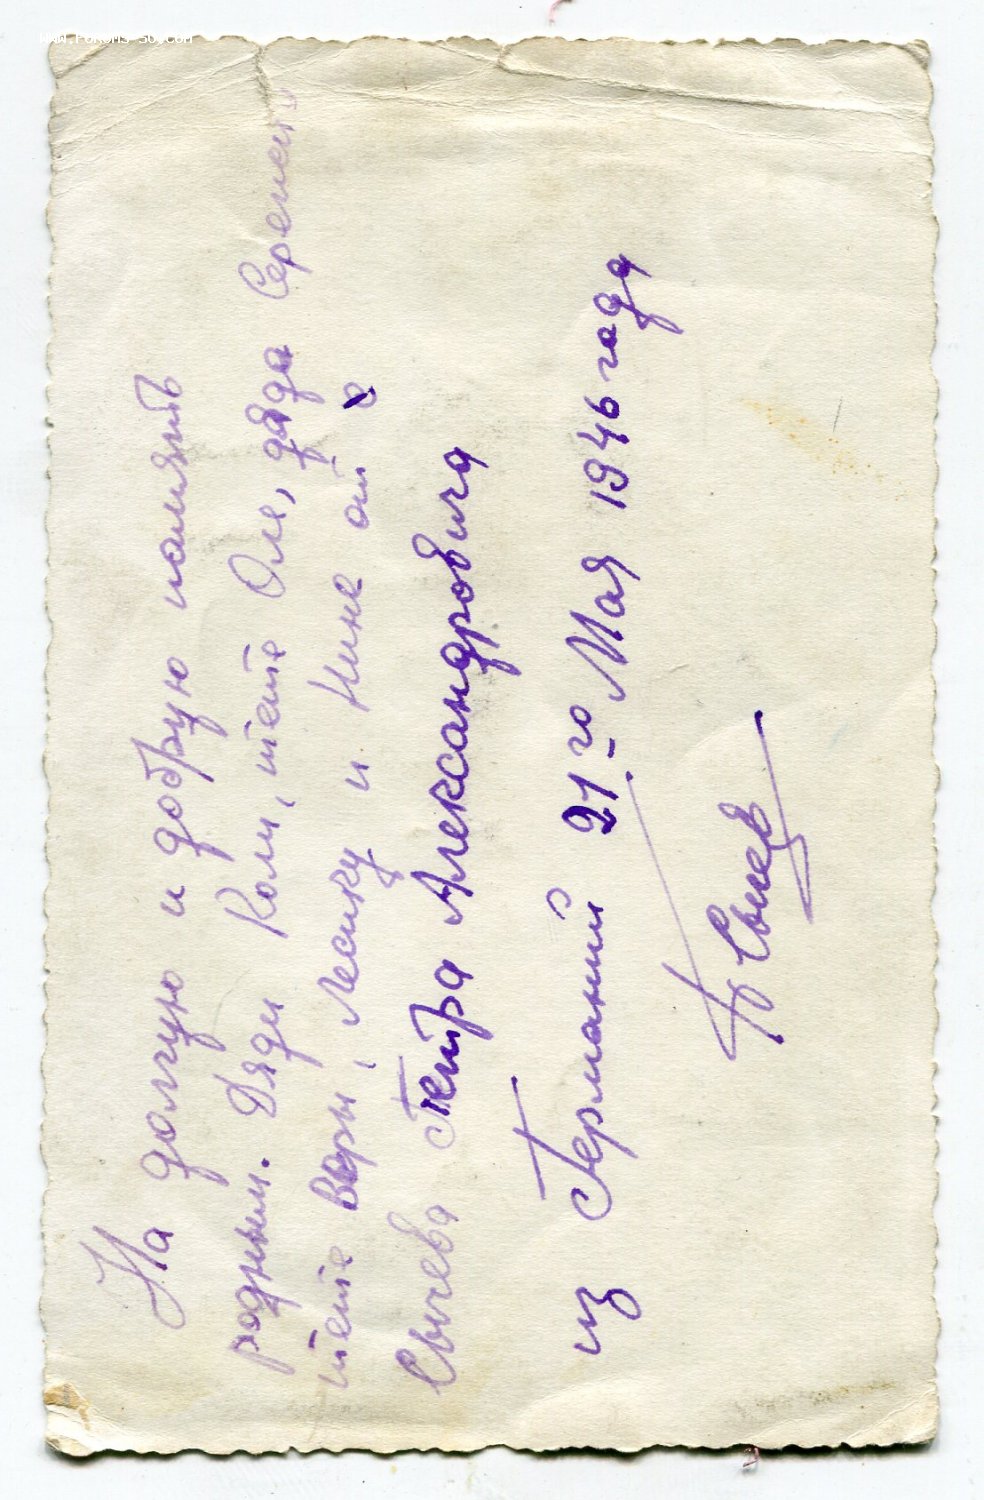 www.forums-su.com
На долгую и добрую память
родным. Дяди Коли, тете Оле, дяда Серёжи
тете Веры, Лесику и Нине от
Сычева Петра Александровича
из Германии 21-го Мая 1946 года
Сычев